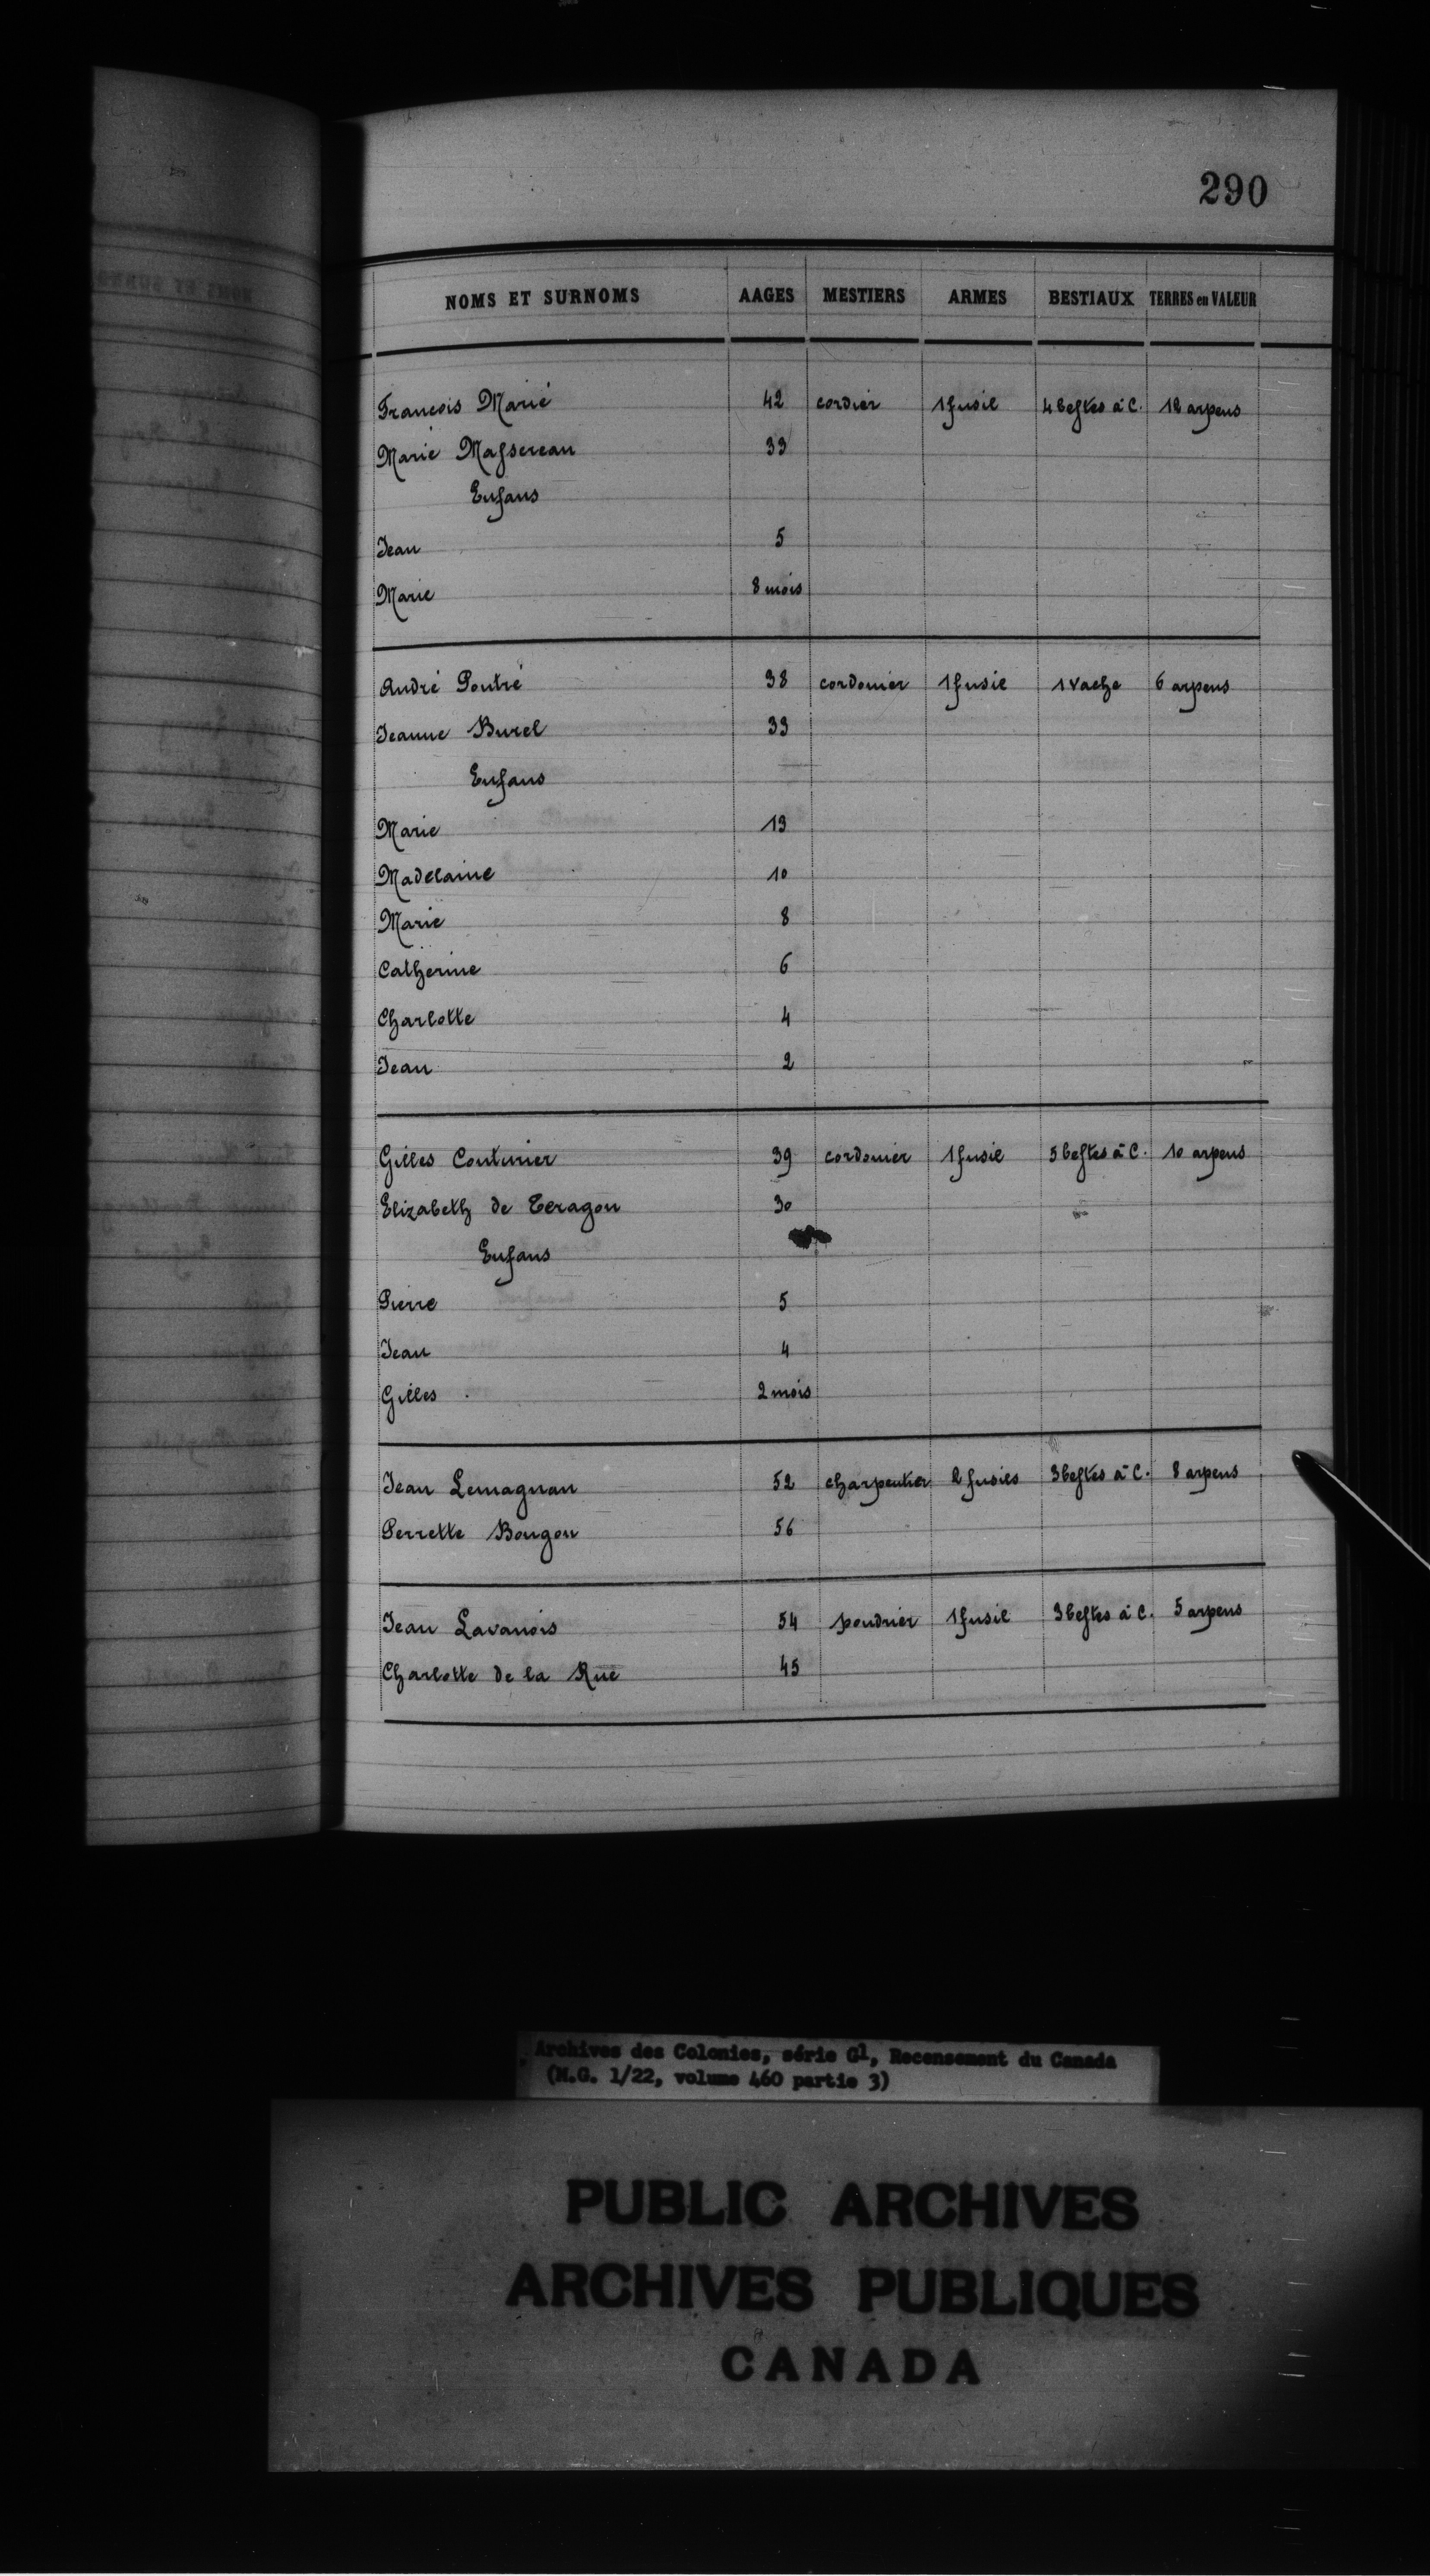 290
NOMS ET SURNOMS AAGES MESTIERS ARMES BESTIAUX TERRES en VALEUR
Francois Marié 42 cordier 1 fusil 4 bestes à C. 12 arpens
Marie Massereau 33
Enfans
Jean 5
Marie 8 mois
André Poutré 38 cordonier 1 fusil 1 vache 6 arpens
Jeanne Burel 33
Enfans
Marie 13
Madelaine 10
Marie 8
Catherine 6
Charlotte 4
Jean 2
Gilles Couturier 39 cordonier 1 fusil 5 bestes à C. 10 arpens
Elizabeth de Teragon 30
Enfans
Pierre 5
Jean 4
Gilles 2 mois
Jean Lemagnan 52 charpentier 2 fusils 3 bestes à C. 8 arpens
Perrette Bougon 56
Jean Lavanois 54 poudrier 1 fusil 3 bestes à C. 5 arpens
Charlotte de la Rue 45
Archives des Colonies, série G1, Recensement du Canada
(M.G. 1/22, volume 460 partie 3)
PUBLIC ARCHIVES
ARCHIVES PUBLIQUES
CANADA